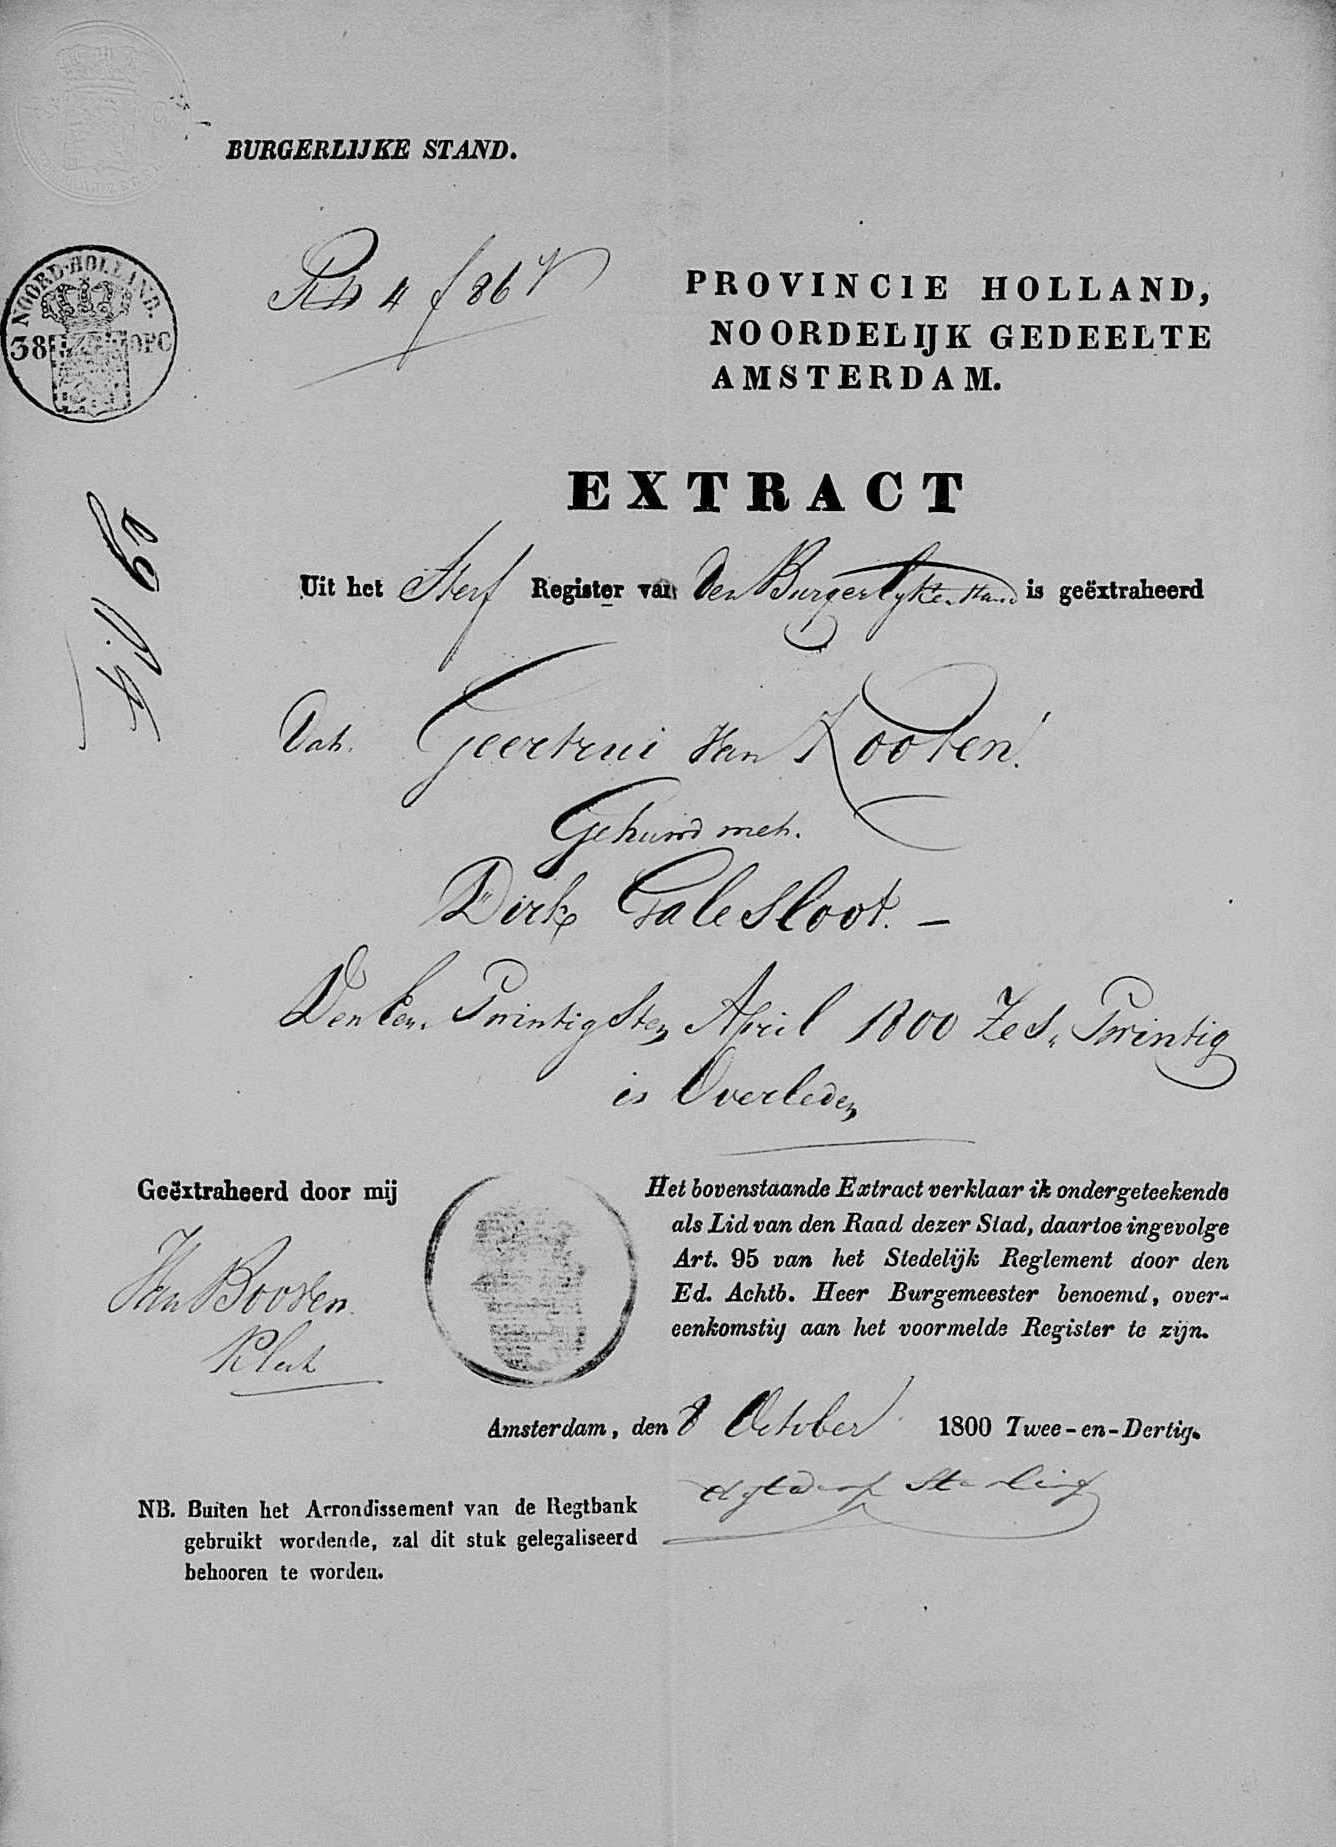 BURGERLIJKE STAND.
4 f 86 v
NOORD-HOLLAND.
38 OPC
PROVINCIE HOLLAND,
NOORDELIJK GEDEELTE
AMSTERDAM.
EXTRACT
Uit het Sterf Register van den Burgerlyken Stand is geëxtraheerd
Dat. Geertrui van Kooten.
Gehuwd met.
Dirk Galesloot. —
Den Een Twintigsten April 1800 Zes Twintig
is Overleden
Geëxtraheerd door mij
Van Booven
Klerk
Het bovenstaande Extract verklaar ik ondergeteekende
als Lid van den Raad dezer Stad, daartoe ingevolge
Art. 95 van het Stedelijk Reglement door den
Ed. Achtb. Heer Burgemeester benoemd, over-
eenkomstig aan het voormelde Register te zijn.
Amsterdam, den 8 October 1800 Twee-en-Dertig.
NB. Buiten het Arrondissement van de Regtbank
gebruikt wordende, zal dit stuk gelegaliseerd
behooren te worden.